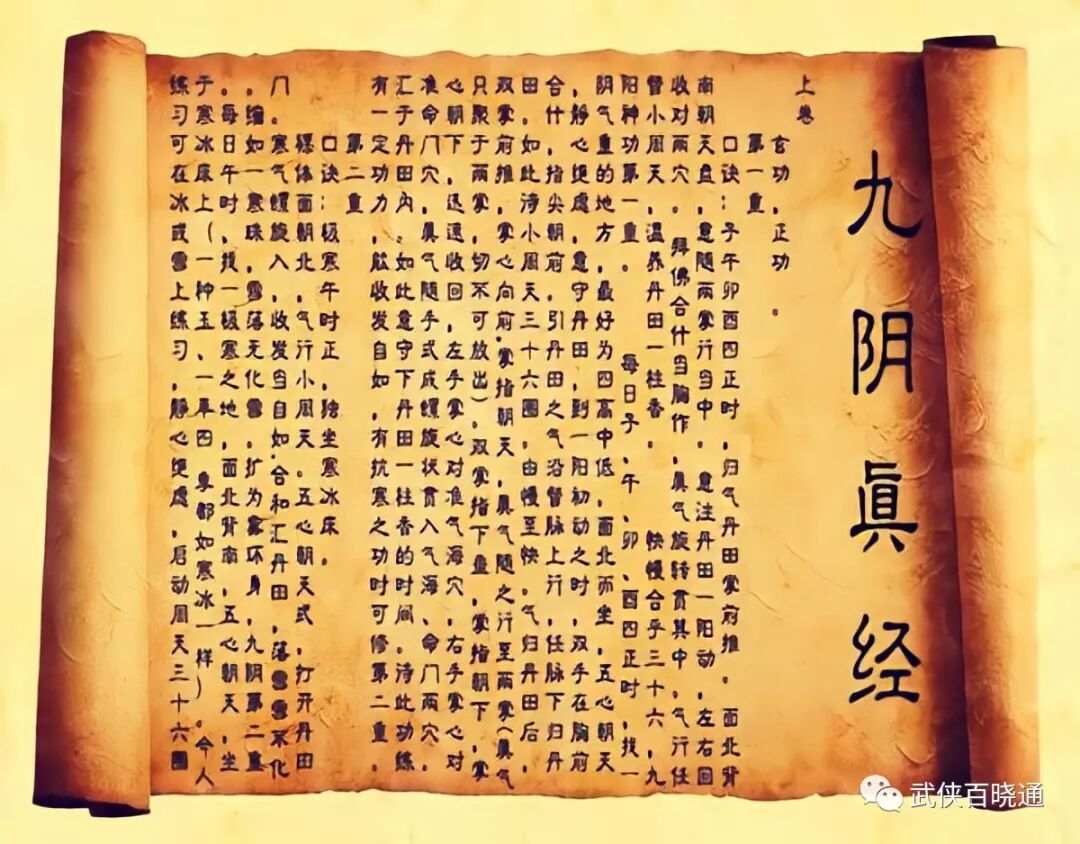 九阴眞经
上卷
玄功,正功。
第一重
口诀:子午卯酉四正时,归气丹田掌前推。面北背
南朝天盘,意随两掌行当中。意注丹田一阳动,左右回
收对两穴。拜佛合什当胸作,真气旋转贯其中。气行任
督小周天,温养丹田一柱香。快慢合乎三十六,九
阳神功第一重。每日子,午,卯,酉四正时,找一
阴气重的地方,最好为四高中低,面北而坐,五心朝天
,静心绝虑,意守丹田,到一阳初动之时,双手在胸前
合什,指尖朝前,引丹田之气沿督脉上行,任脉下归丹
田。如此诗小周天三十六圈,由慢至快。气归丹田后,
双掌前推,掌心向前,掌指朝天,真气随之行至两掌(真气
只聚于两掌,切不可放出),双掌指下盘,掌指朝下,掌
心朝下,迅速收回,左手掌心对准气海穴,右手掌心对
准命门穴,真气随手式成螺旋状贯入气海、命门两穴,
汇于丹田内。如此意守下丹田一柱香的时间。诗此功练
有一定功力,能收发自如,有抗寒之功时可修第二重。
第二重
口诀:极寒午时正,独坐寒冰床。
裸体面朝北,气行小周天。五心朝天式,打开丹田
门。寒气螺旋入,收发当自如。合和汇丹田,落雪雪不化
,缩如一寒珠,雪落无化雪,扩为雾环身,九阴第二重
。每日午时,找一极寒之地,面北背南,五心朝天,坐
于寒冰床上(一种玉、一 四 都如寒冰一样)。今人
练习可在冰或雪上练习,静心绝虑,启动周天三十六圈
武侠百晓通